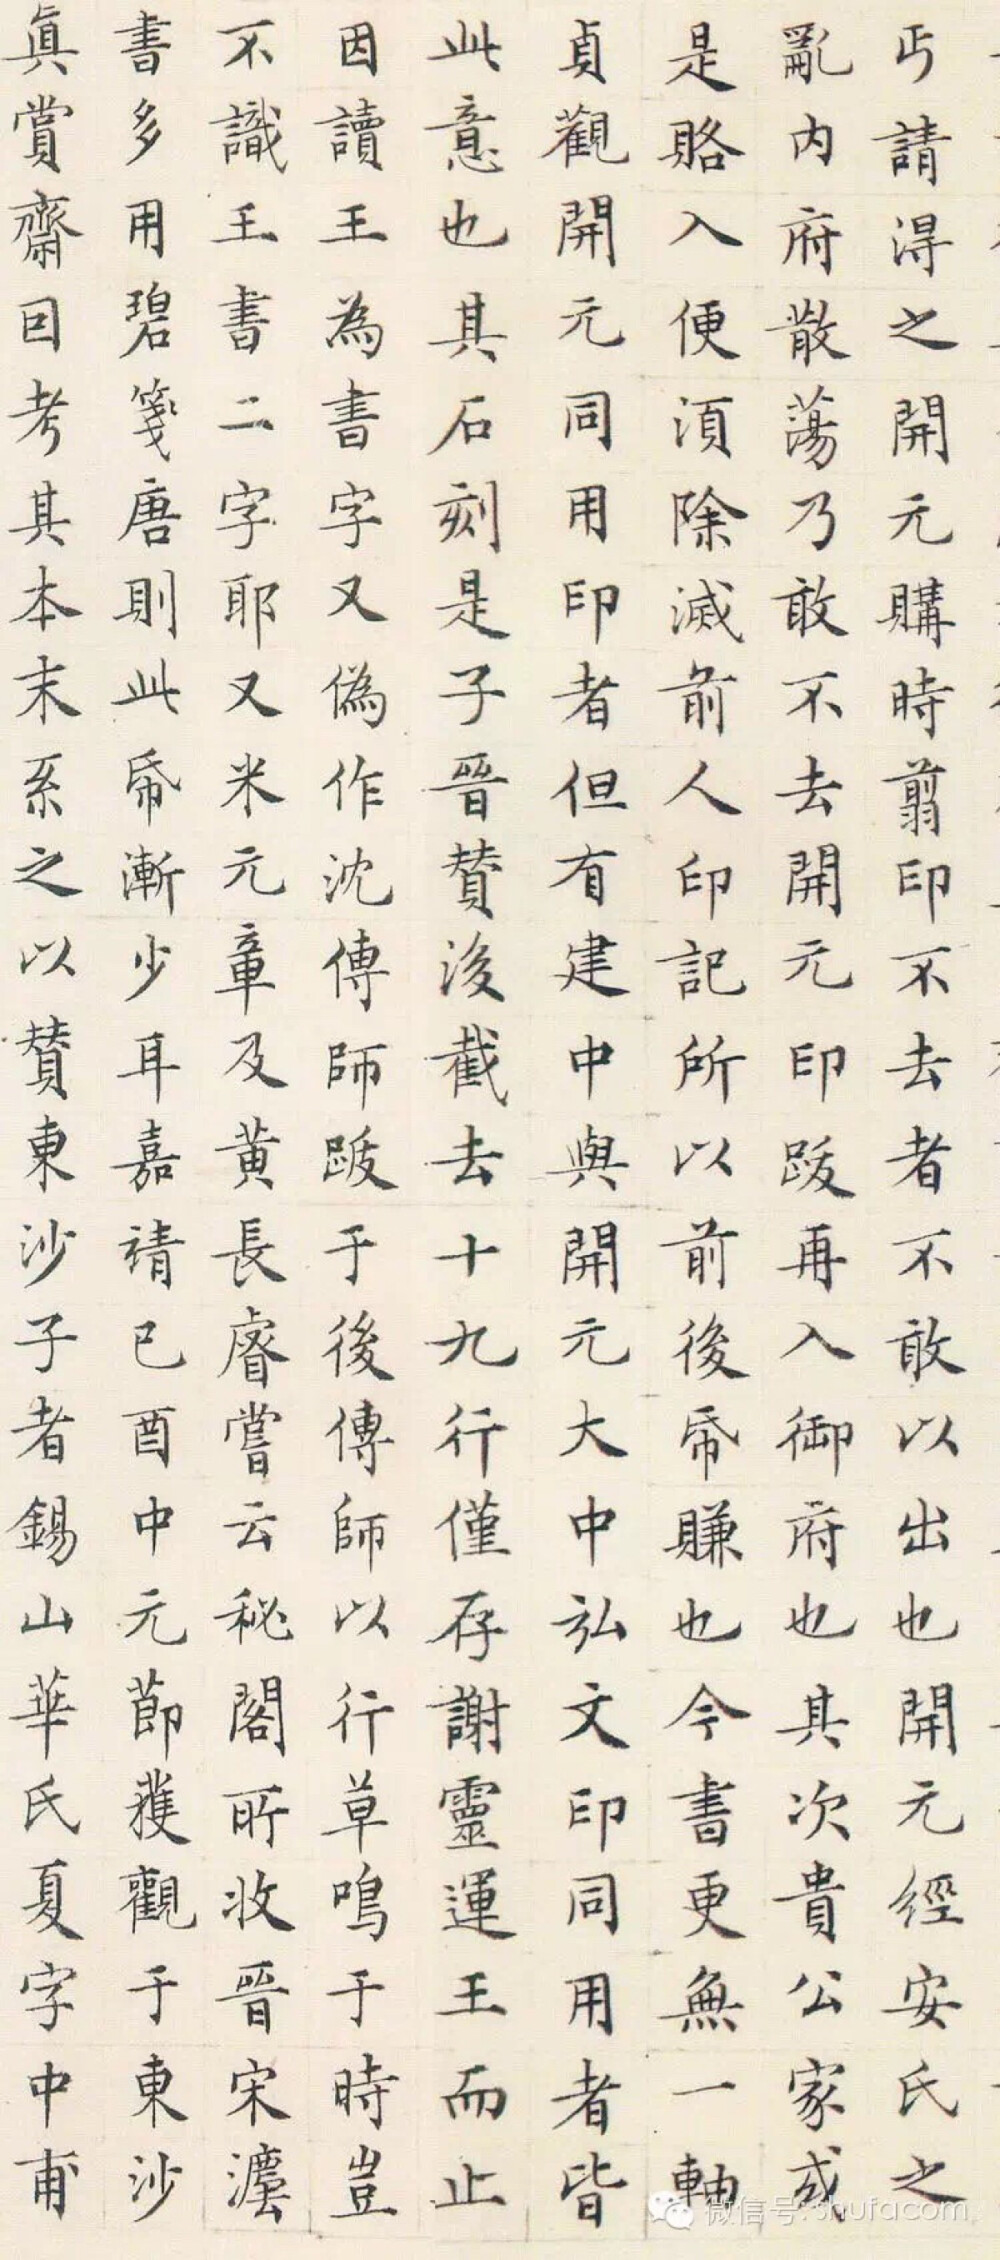 丐請淂之開元購時翦印不去者不敢以出也開元經安氏之
亂內府散蕩乃敢不去開元印跋再入御府也其次貴公家或
是賂入便湏除滅前人印記所以前後帋賺也今書更無一軸
貞觀開元同用印者但有建中與開元大中弘文印同用者皆
此意也其石刻是子晉贊後截去十九行僅存謝靈運王而止
因讀王為書字又偽作沈傳師跋于後傳師以行草鳴于時豈
不識王書二字耶又米元章及黃長睿嘗云秘閣所收晉宋灋
書多用碧箋唐則此帋漸少耳嘉靖己酉中元節獲觀于東沙
真賞齋因考其本末系之以贊東沙子者錫山華氏夏字中甫
微信号: shufacom